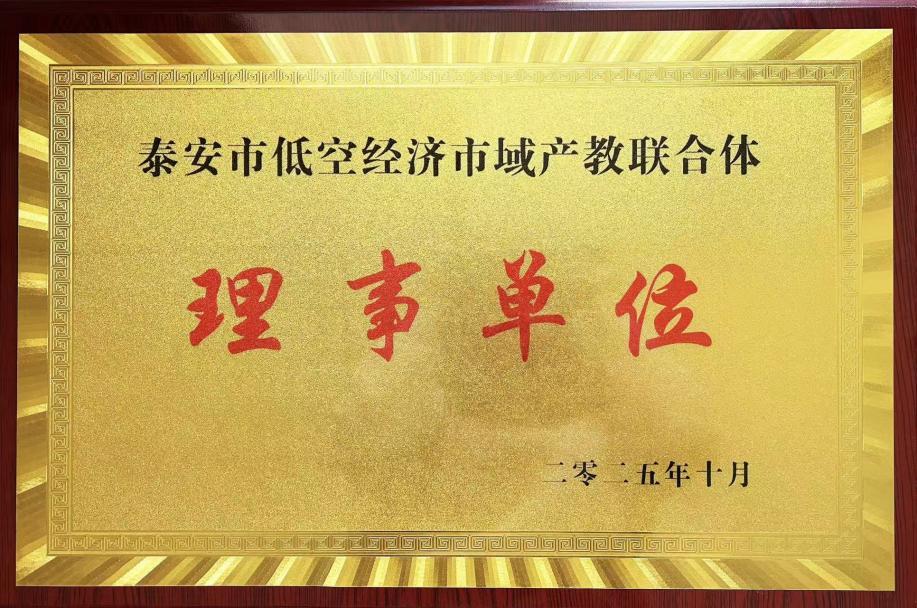 泰安市低空经济市域产教联合体
理事单位
二零二五年十月